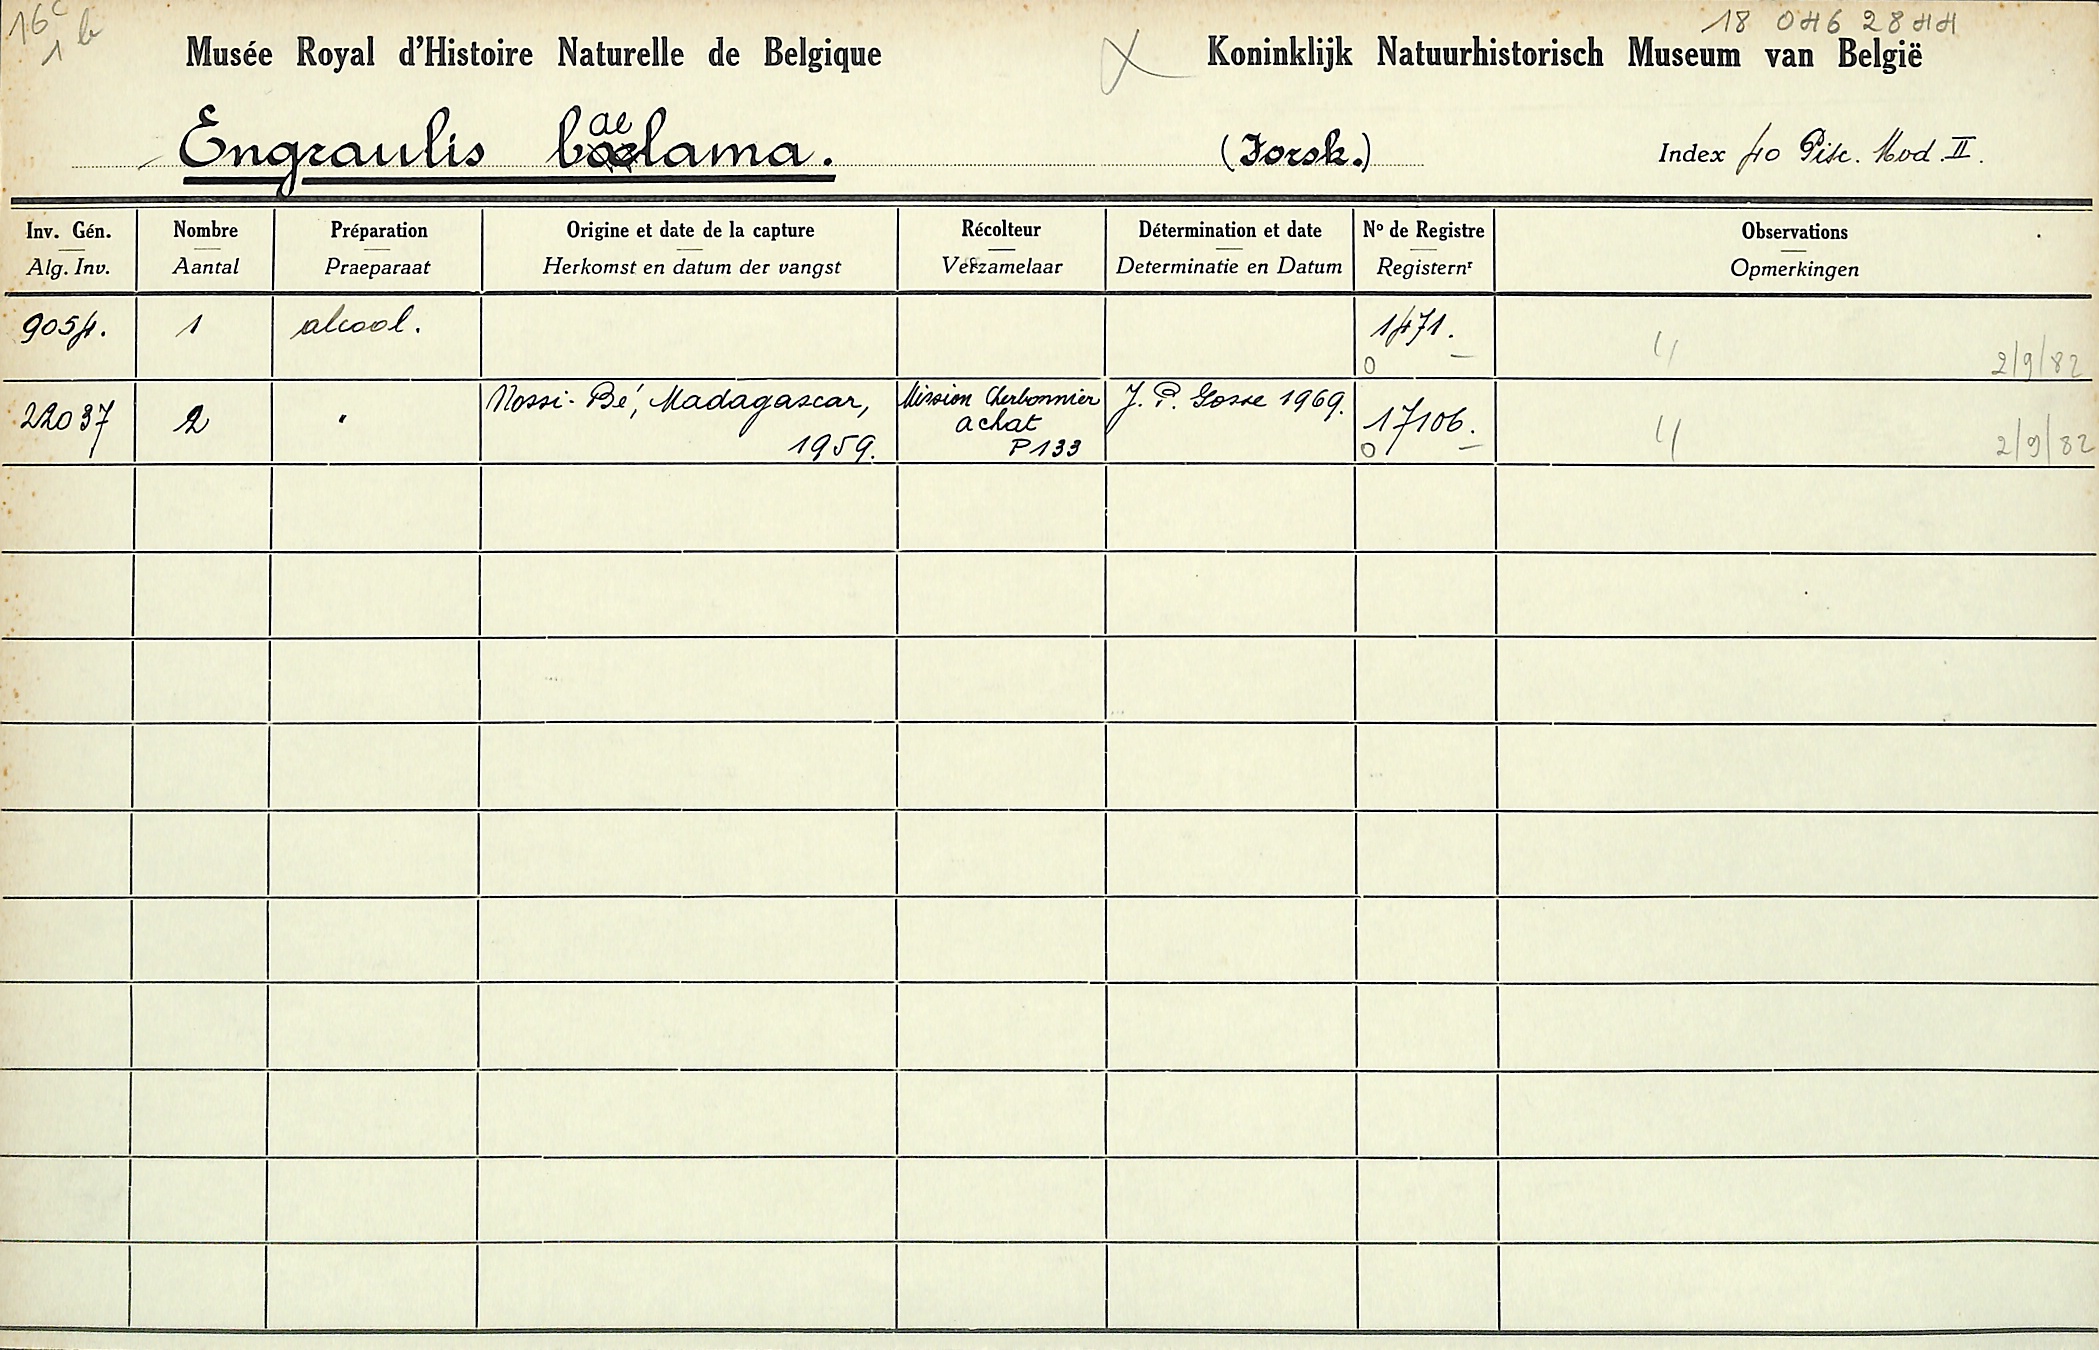 16c
1 b
18 046 2844
Musée Royal d'Histoire Naturelle de Belgique
Koninklijk Natuurhistorisch Museum van België
Engraulis baelama. (Forsk.) Index 40 Pisc. Mod. II.
Inv. Gén. Nombre Préparation Origine et date de la capture Récolteur Détermination et date Nº de Registre Observations
Alg. Inv. Aantal Praeparaat Herkomst en datum der vangst Verzamelaar Determinatie en Datum Registernr Opmerkingen
9054. 1 alcool. 1471.
0 2/9/82
22037 2 " Nossi-Bé, Madagascar, 1959. Mission Cherbonnier achat P133 J. P. Gosse 1969. 17106.
0 2/9/82